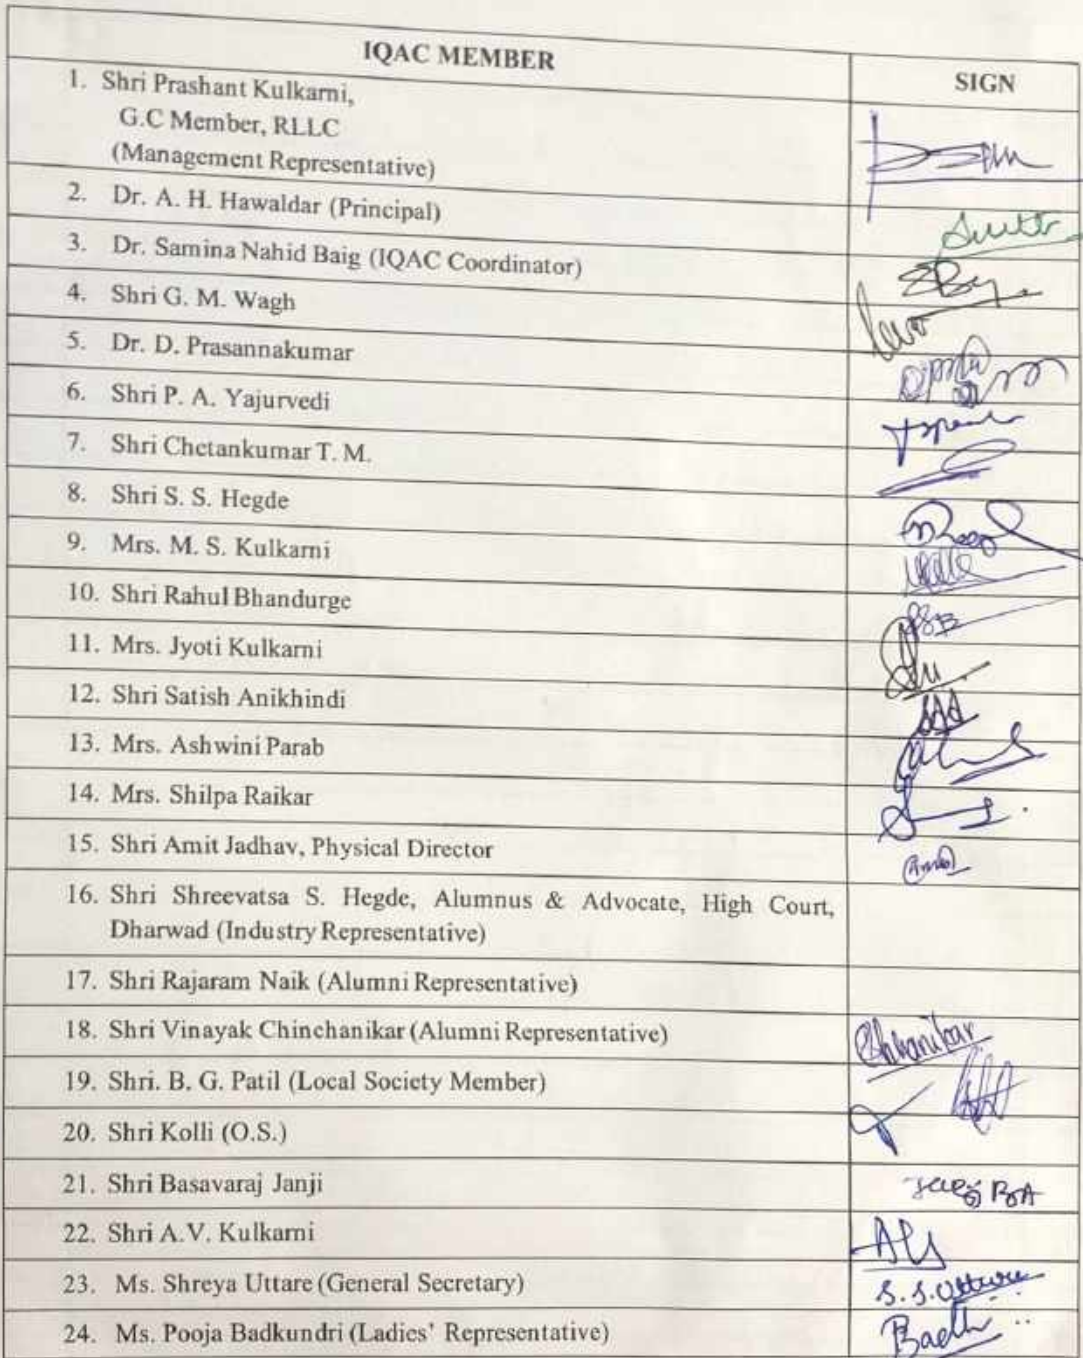 IQAC MEMBER
SIGN
1. Shri Prashant Kulkarni,
G.C Member, RLLC
(Management Representative)
2. Dr. A. H. Hawaldar (Principal)
3. Dr. Samina Nahid Baig (IQAC Coordinator)
4. Shri G. M. Wagh
5. Dr. D. Prasannakumar
6. Shri P. A. Yajurvedi
7. Shri Chetankumar T. M.
8. Shri S. S. Hegde
9. Mrs. M. S. Kulkarni
10. Shri Rahul Bhandurge
11. Mrs. Jyoti Kulkarni
12. Shri Satish Anikhindi
13. Mrs. Ashwini Parab
14. Mrs. Shilpa Raikar
15. Shri Amit Jadhav, Physical Director
16. Shri Shreevatsa S. Hegde, Alumnus & Advocate, High Court,
Dharwad (Industry Representative)
17. Shri Rajaram Naik (Alumni Representative)
18. Shri Vinayak Chinchanikar (Alumni Representative)
19. Shri. B. G. Patil (Local Society Member)
20. Shri Kolli (O.S.)
21. Shri Basavaraj Janji
22. Shri A.V. Kulkarni
23. Ms. Shreya Uttare (General Secretary) S.S.Uttare
24. Ms. Pooja Badkundri (Ladies' Representative)